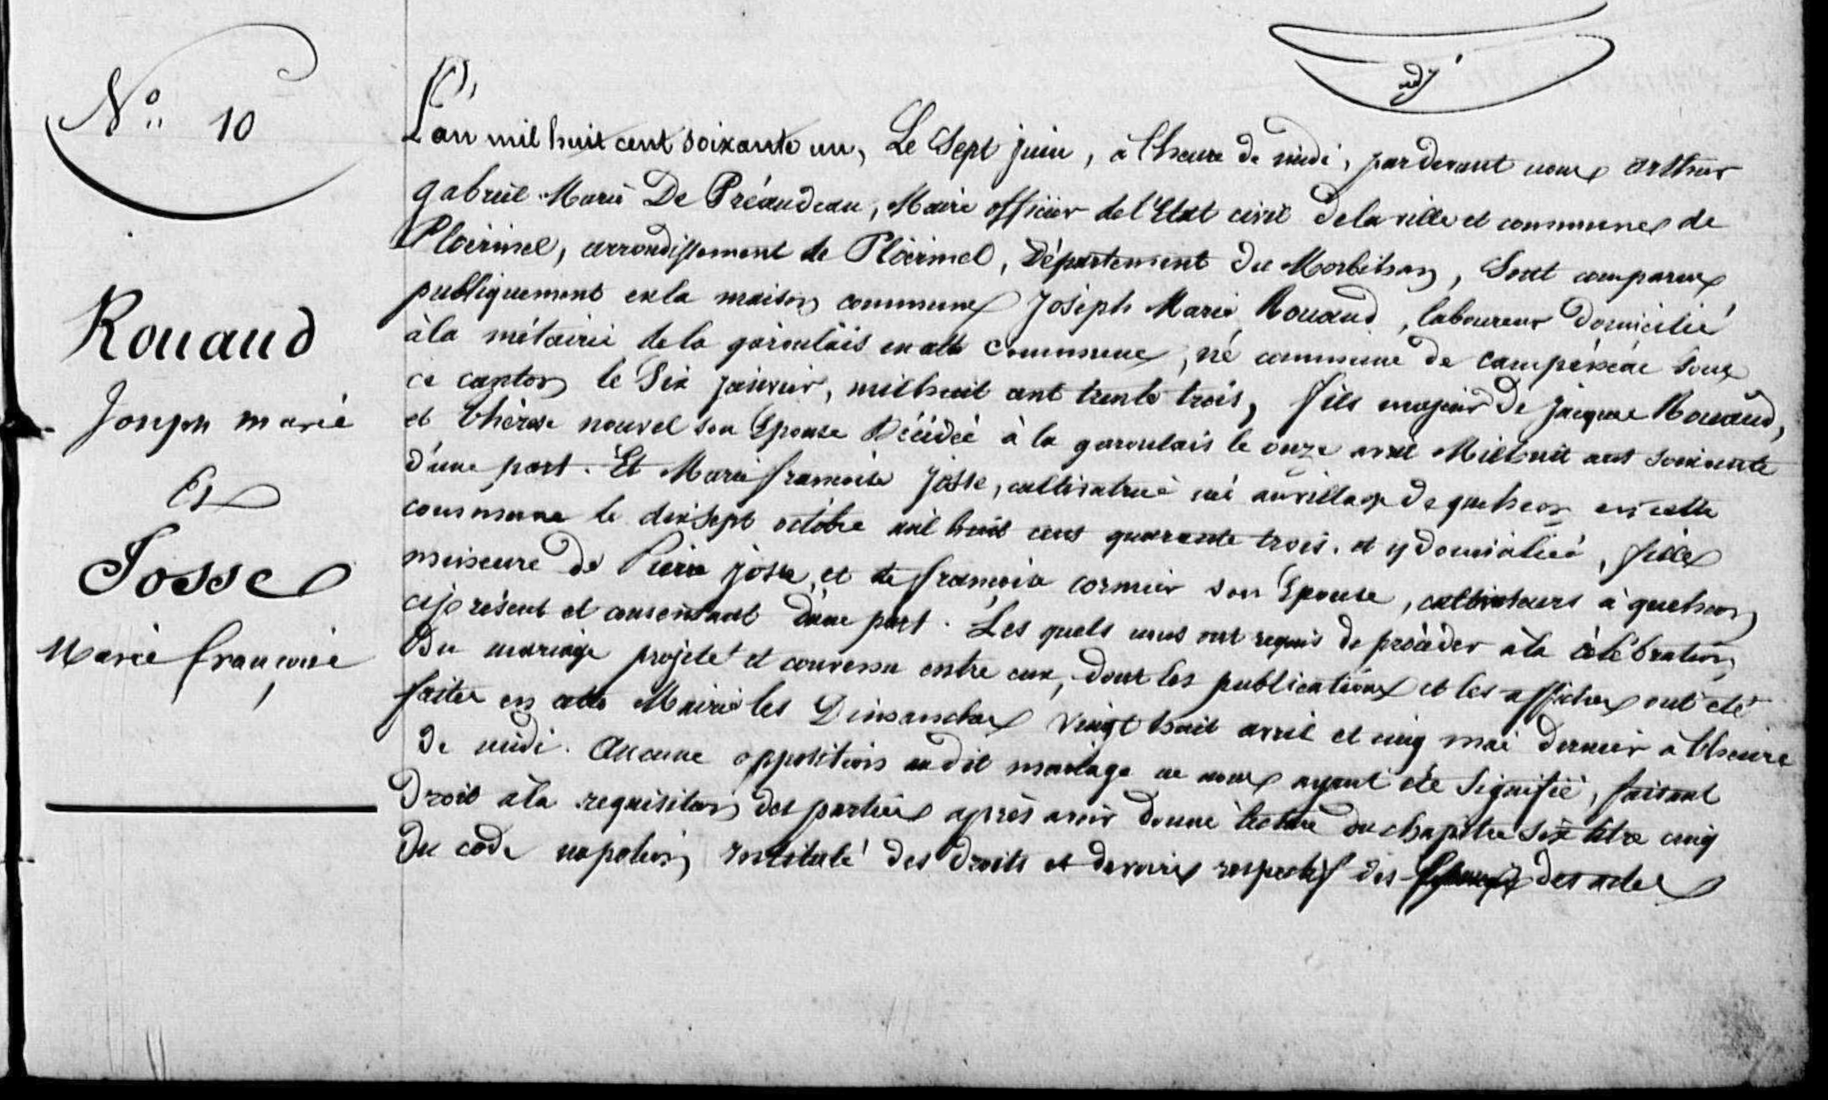 N° 10
Rouaud
Joseph marie
Et
Josse
Marie françoise
L'an mil huit cent soixante un, Le Sept juin, à l'heure de midi, par devant nous arthur
gabriel Marie De Préaudeau, Maire officier de l'Etat civil de la ville et commune de
Ploërmel, arrondissement de Ploërmel, Département du Morbihan, Sont comparus
publiquement en la maison commune Joseph Marie Rouaud, laboureur domicilié
à la métairie de la garoulais en cette commune, né commune de campénéac sous
ce canton le Six janvier, mil huit cent trente trois, fils majeur de jacques Rouaud,
et thérèse nouvel son Epouse Décédée à la garoulais le onze avril Mil huit cent soixante
d'une part. Et Marie françoise josse, cultivatrice née au village de quehéon en cette
commune le dix sept octobre mil huit cent quarante trois. et y domiciliée, fille
mineure de Pierre josse, et de françoise cormier son Epouse, cultivateurs à quehéon
ci présent et consentant d'une part. Les quels nous ont requis de procéder à la célébration
Du mariage projeté et convenu entre eux, dont les publications et les affiches ont été
faites en cette Mairie les Dimanches vingt huit avril et cinq mai dernier à l'heure
de midi. Aucune opposition au dit mariage ne nous ayant été Signifié, faisant
Droit à la requisition des parties après avoir donné lecture du chapitre six titre cinq
Du code napoléon, intitulé des Droits et devoirs respectif des des actes